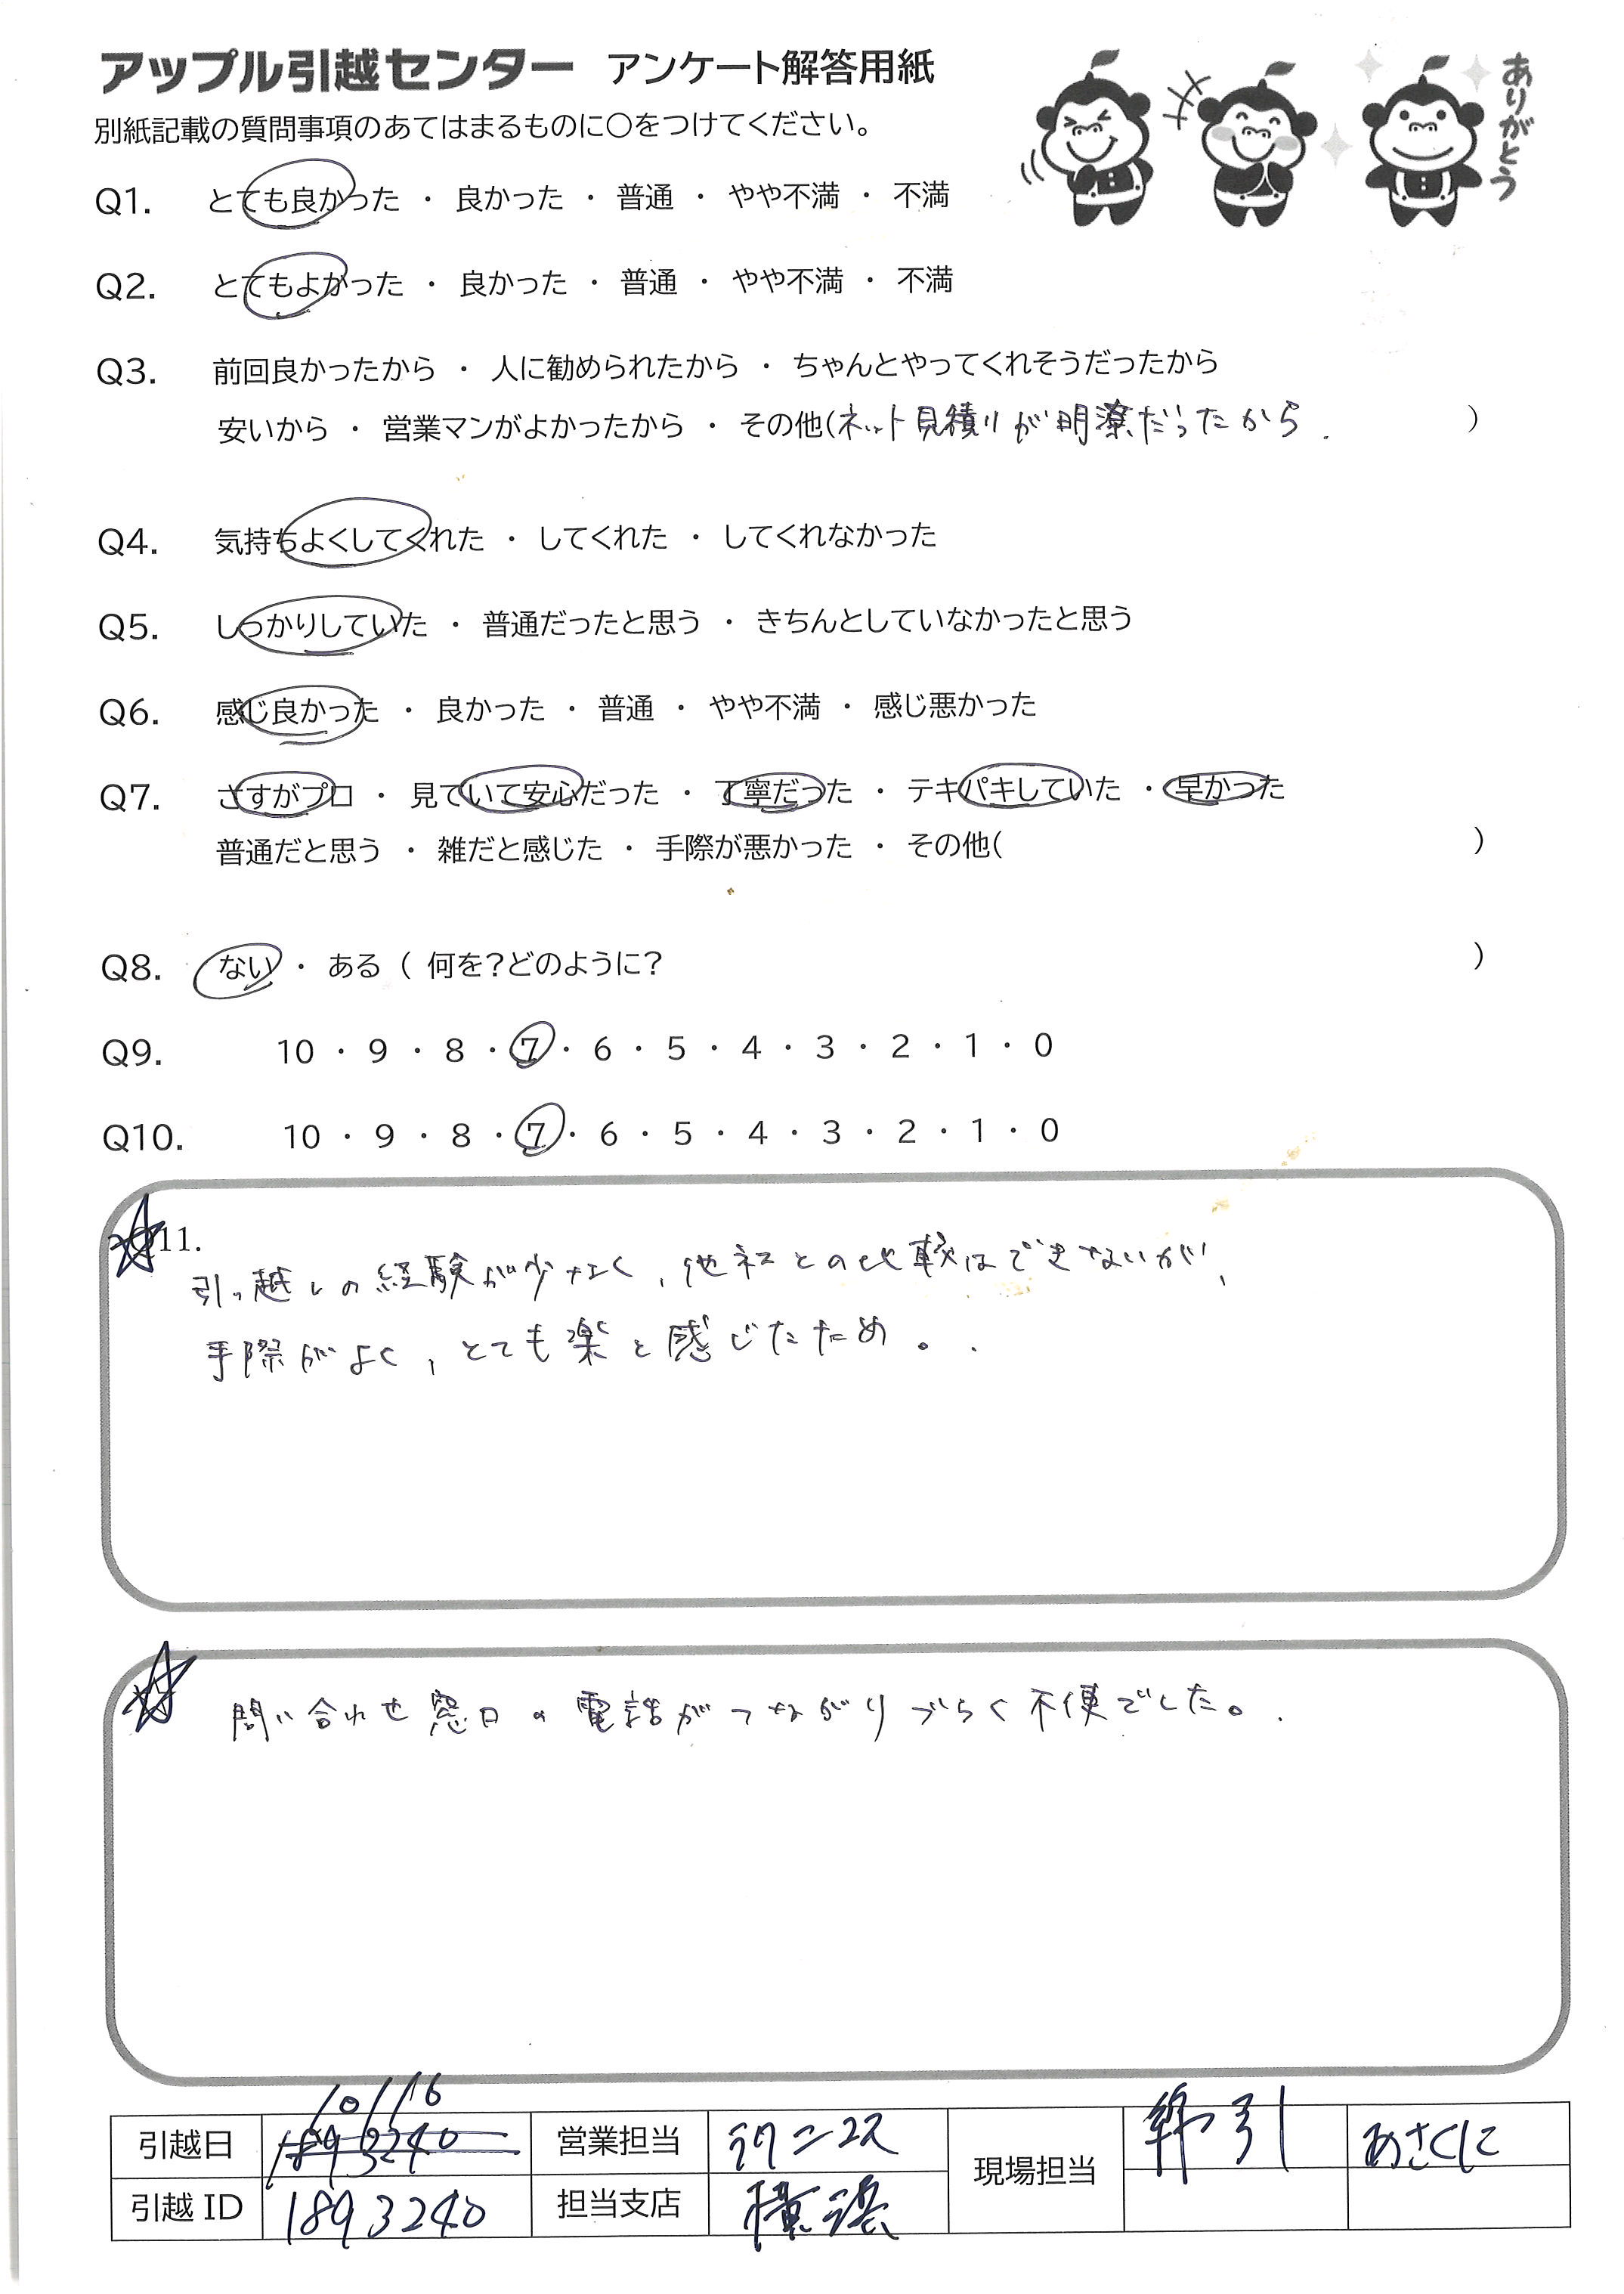 アップル引越センター アンケート解答用紙
ありがとう
別紙記載の質問事項のあてはまるものに○をつけてください。
Q1. とても良かった ・ 良かった ・ 普通 ・ やや不満 ・ 不満
Q2. とてもよかった ・ 良かった ・ 普通 ・ やや不満 ・ 不満
Q3. 前回良かったから ・ 人に勧められたから ・ ちゃんとやってくれそうだったから
安いから ・ 営業マンがよかったから ・ その他(ネット見積りが明瞭だったから. )
Q4. 気持ちよくしてくれた ・ してくれた ・ してくれなかった
Q5. しっかりしていた ・ 普通だったと思う ・ きちんとしていなかったと思う
Q6. 感じ良かった ・ 良かった ・ 普通 ・ やや不満 ・ 感じ悪かった
Q7. さすがプロ ・ 見ていて安心だった ・ 丁寧だった ・ テキパキしていた ・ 早かった
普通だと思う ・ 雑だと感じた ・ 手際が悪かった ・ その他( )
Q8. ない ・ ある ( 何を?どのように? )
Q9. 10 ・ 9 ・ 8 ・ 7 ・ 6 ・ 5 ・ 4 ・ 3 ・ 2 ・ 1 ・ 0
Q10. 10 ・ 9 ・ 8 ・ 7 ・ 6 ・ 5 ・ 4 ・ 3 ・ 2 ・ 1 ・ 0
Q11.
引っ越しの経験が少なく、他社との比較はできないが、
手際がよく、とても楽と感じたため。
問い合わせ窓口の電話がつながりづらく不便でした。
10/16
引越日 1893240 営業担当 現場担当 綿引 あさくに
引越 ID 1893240 担当支店 横浜